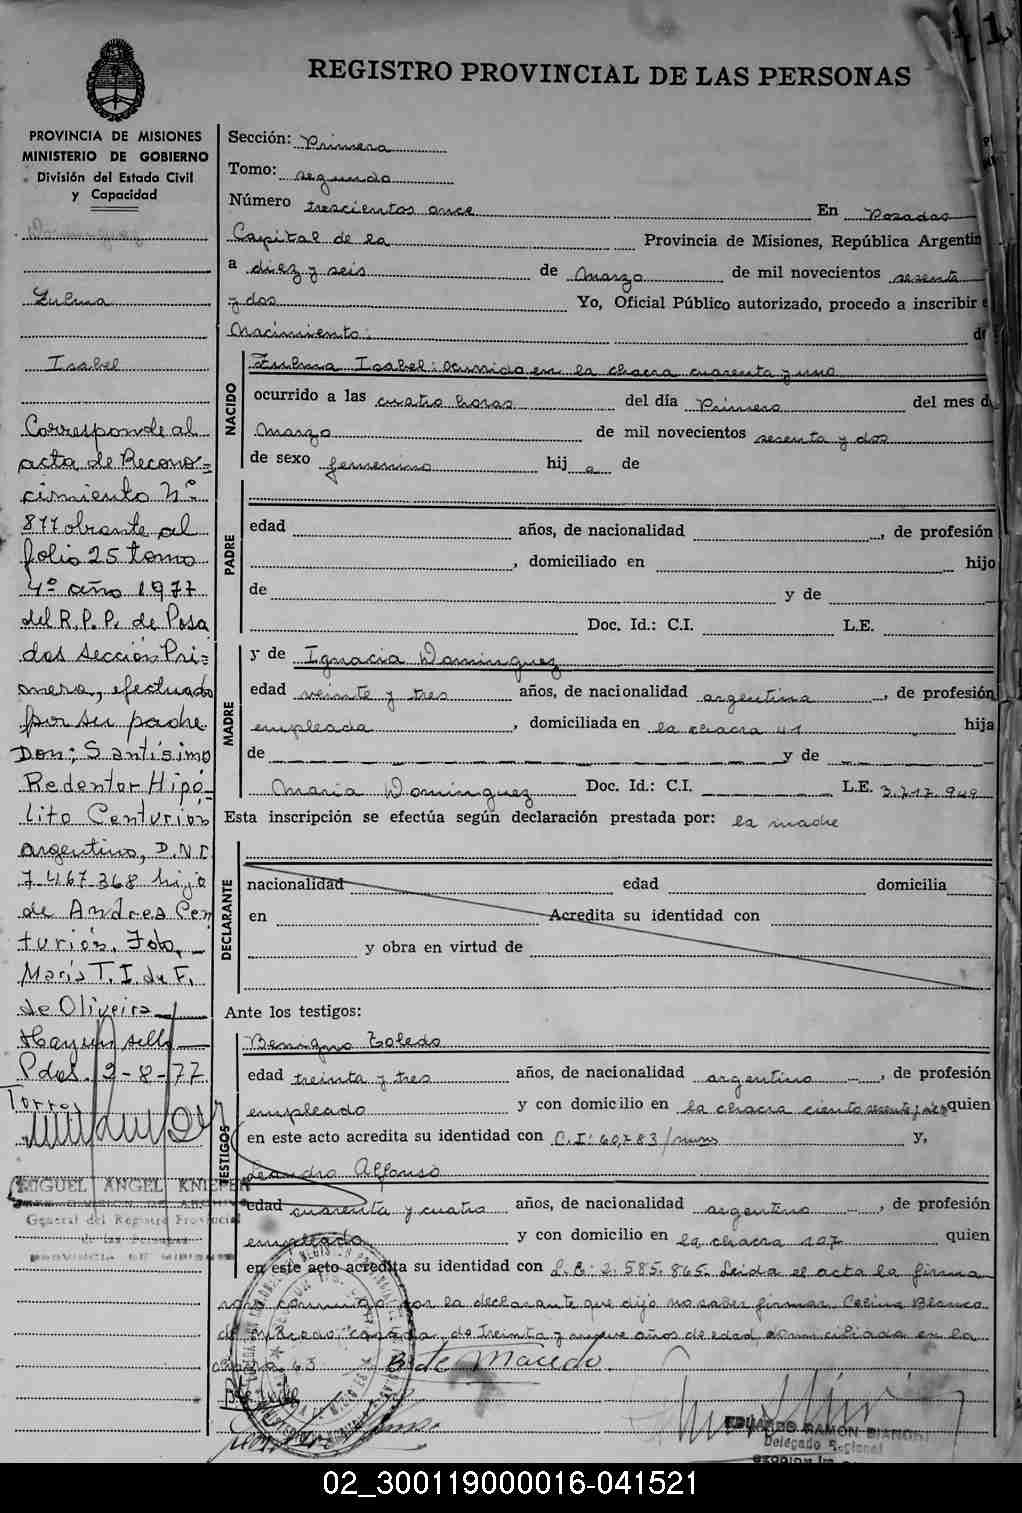 REGISTRO PROVINCIAL DE LAS PERSONAS
PROVINCIA DE MISIONES
MINISTERIO DE GOBIERNO
División del Estado Civil
y Capacidad
Zulma
Isabel
Corresponde al
acta de Recono=
cimiento Nº
877 obrante al
folio 25 tomo
4º año 1977
del R.P.P. de Posa
das sección Pri=
mera, efectuado
por su padre
Don: Santísimo
Redentor Hipó-
lito Centurión
argentino, D.N.I.
7.467.368 hijo
de Andrea Cen
turión. Fdo,
María T. I. de F.
de Oliveira
Hay un sello
Pdas. 9-8-77
Torres
MIGUEL ANGEL KNIEPER
General del Registro Provincial
de las Personas
PROVINCIA DE MISIONES
Sección: Primera
Tomo: segundo
Número trescientos once En Posadas
Capital de la Provincia de Misiones, República Argentin
a diez y seis de Marzo de mil novecientos sesenta
y dos Yo, Oficial Público autorizado, procedo a inscribir e
Nacimiento: de
NACIDO
Zulma Isabel: ocurrido en la chacra cuarenta y uno
ocurrido a las cuatro horas del día Primero del mes d
Marzo de mil novecientos sesenta y dos
de sexo femenino hij a de
PADRE
edad años, de nacionalidad , de profesión
, domiciliado en hijo
de y de
Doc. Id.: C.I. L.E.
MADRE
y de Ignacia Dominguez
edad veinte y tres años, de nacionalidad argentina , de profesión
empleada , domiciliada en la chacra 41 hija
de y de
Maria Dominguez Doc. Id.: C.I. L.E. 3.717.949
Esta inscripción se efectúa según declaración prestada por: la madre
DECLARANTE
nacionalidad edad domicilia
en Acredita su identidad con
y obra en virtud de
Ante los testigos:
TESTIGOS
Benigno Toledo
edad treinta y tres años, de nacionalidad argentino , de profesión
empleado y con domicilio en la chacra ciento sesenta y quien
en este acto acredita su identidad con C.I: 60783/mns y,
Leandro Alfonso
edad cuarenta y cuatro años, de nacionalidad argentino , de profesión
empleado y con domicilio en la chacra 107 quien
en este acto acredita su identidad con L.E: 2.585.865. Leida el acta la firma
conmigo por la declarante que dijo no saber firmar Celina Blanco
de Macedo, casada, de treinta y nueve años de edad domiciliada en la
chacra 63 B de Macedo
EDUARDO RAMON BIANGHI
Delegado Regional
02_300119000016-041521